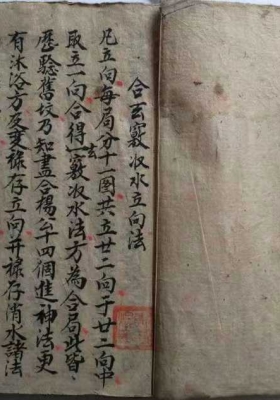 合玄竅收水立向法
凡立向每局分十一圖共立廿二向于廿二向中
取立一向合得一玄竅收水法方為合局此皆
歷驗舊坟乃知盡合楊公十四個進神法更
有沐浴方及更祿存立向并祿存消水諸法